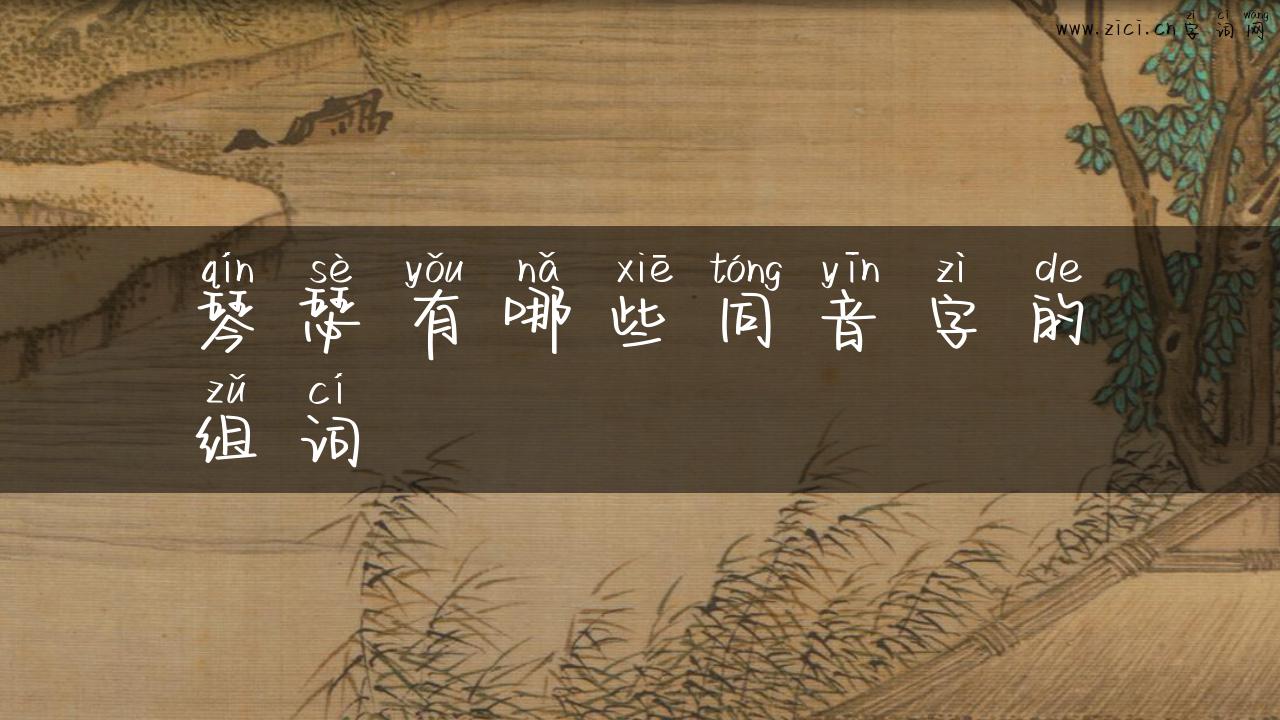 zì cí wǎng
www.zici.cn字词网
qín sè yǒu nǎ xiē tóng yīn zì de
琴瑟有哪些同音字的
zǔ cí
组词